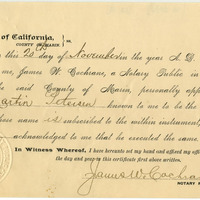 of California,
COUNTY OF MARIN } ss.
this 2d day of November in the year A. D.
me, James W. Cochrane, a Notary Public in
the said County of Marin, personally app
Martin Petersen known to me to be the
whose name is subscribed to the within instrument,
acknowledged to me that he executed the same.
In Witness Whereof, I have hereunto set my hand and affixed my offi
the day and year in this certificate first above written.
James W. Cochran
NOTARY P